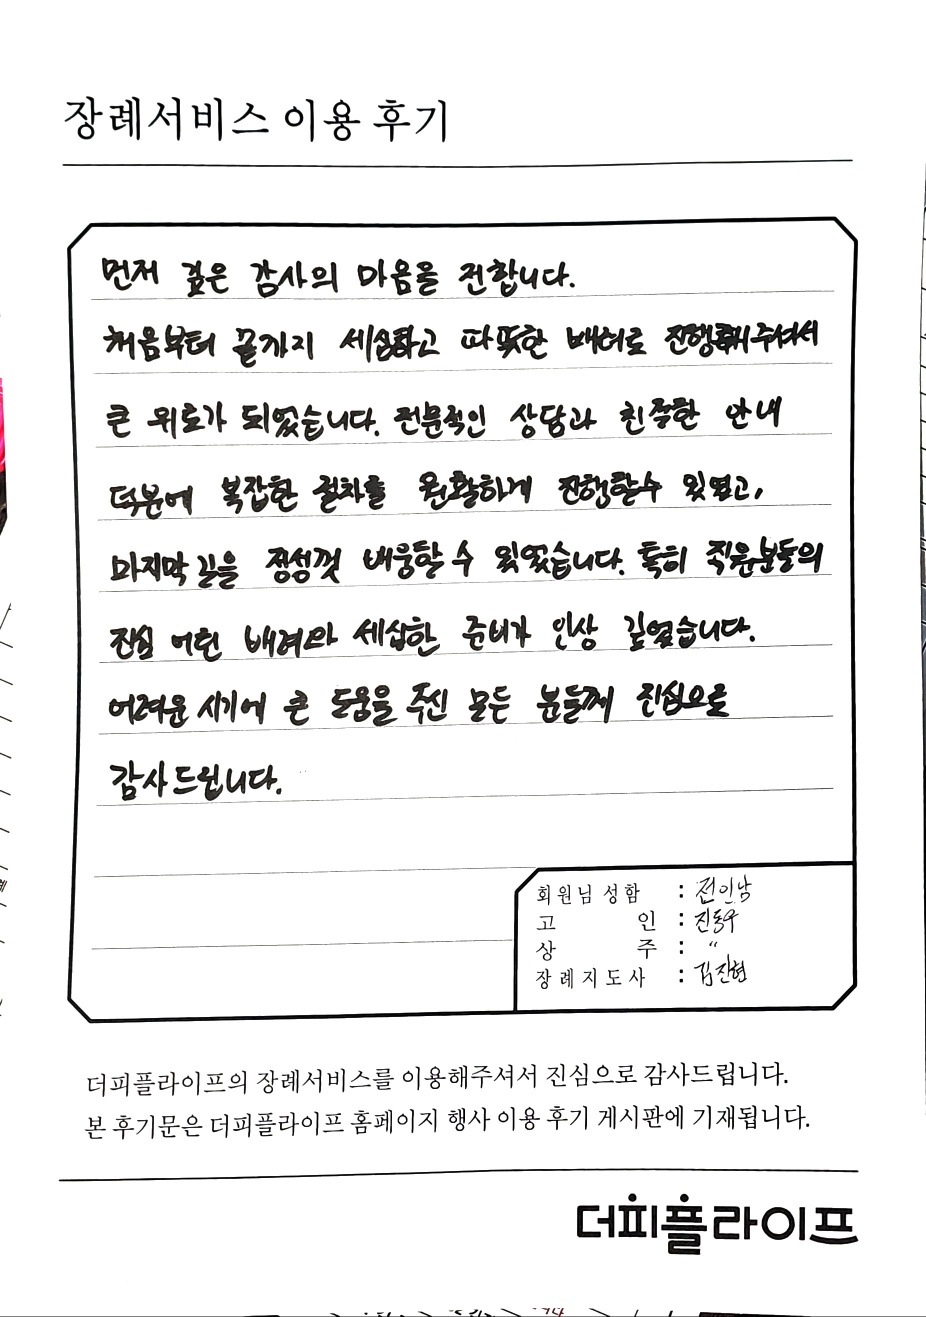 장례서비스 이용 후기
먼저 깊은 감사의 마음을 전합니다.
처음부터 끝까지 세심하고 따뜻한 배려로 진행해주셔서
큰 위로가 되었습니다. 전문적인 상담과 친절한 안내
덕분에 복잡한 절차를 원활하게 진행할수 있었고,
마지막 길을 정성껏 배웅할 수 있었습니다. 특히 직원분들의
진심 어린 배려와 세심한 준비가 인상 깊었습니다.
어려운 시기에 큰 도움을 주신 모든 분들께 진심으로
감사드립니다.
회원님 성함 : 전인남
고 인 : 진동우
상 주 : "
장례지도사 : 김진현
더피플라이프의 장례서비스를 이용해주셔서 진심으로 감사드립니다.
본 후기문은 더피플라이프 홈페이지 행사 이용 후기 게시판에 기재됩니다.
더피플라이프